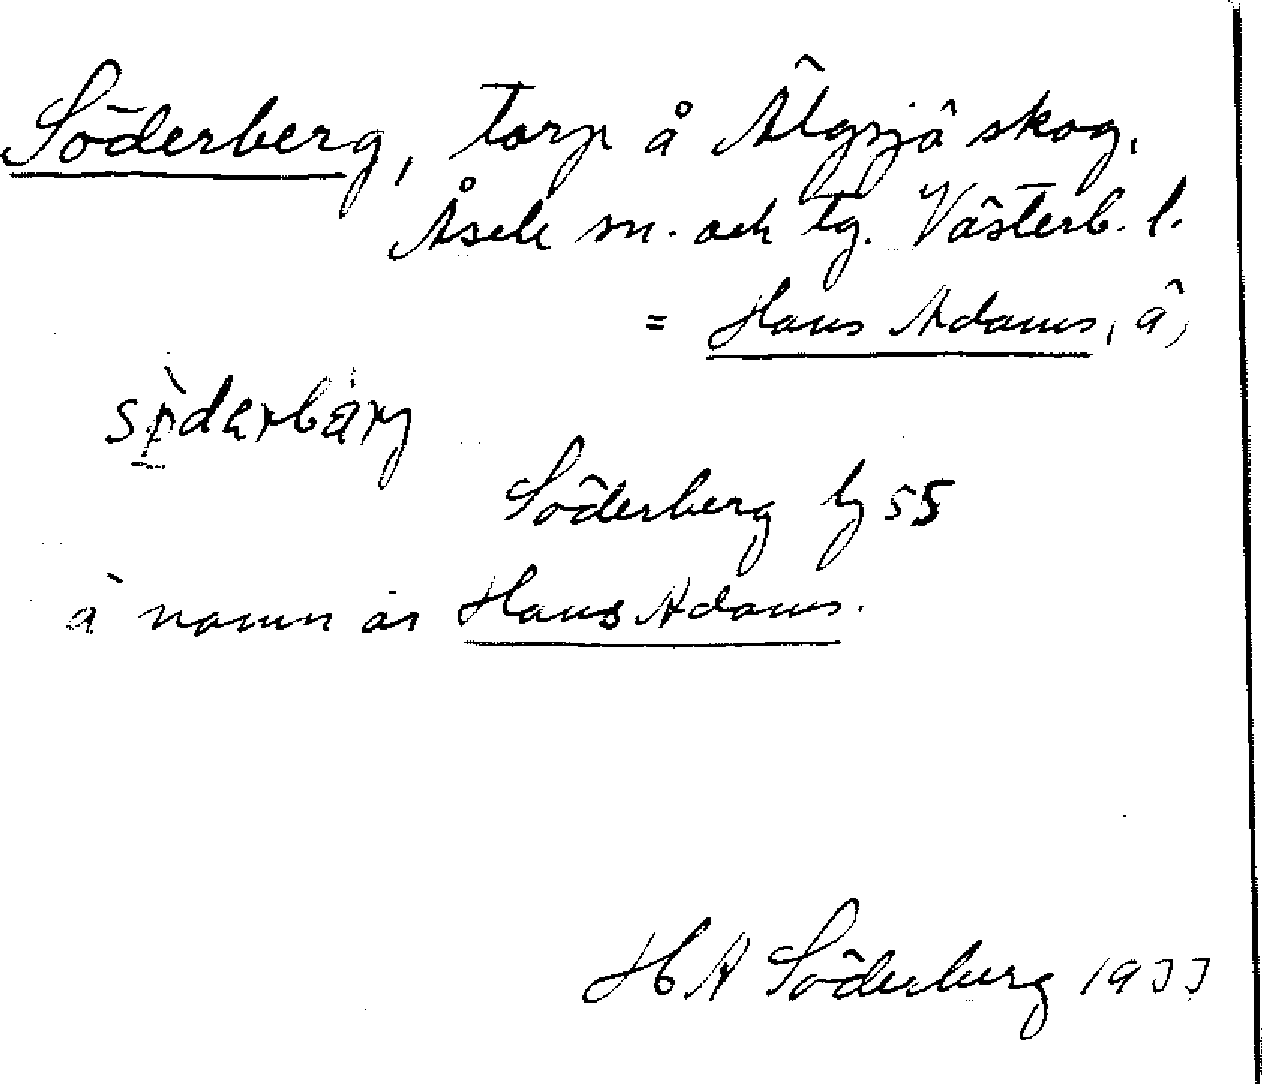 Söderberg, torp å Älgsjö skog,
Åsele sn. och tg. Västerb. l.
= Hans Adams, ä,
södarbärj
Söderberg Lj 55
ä namn är Hans Adams.
H A Söderberg 1933